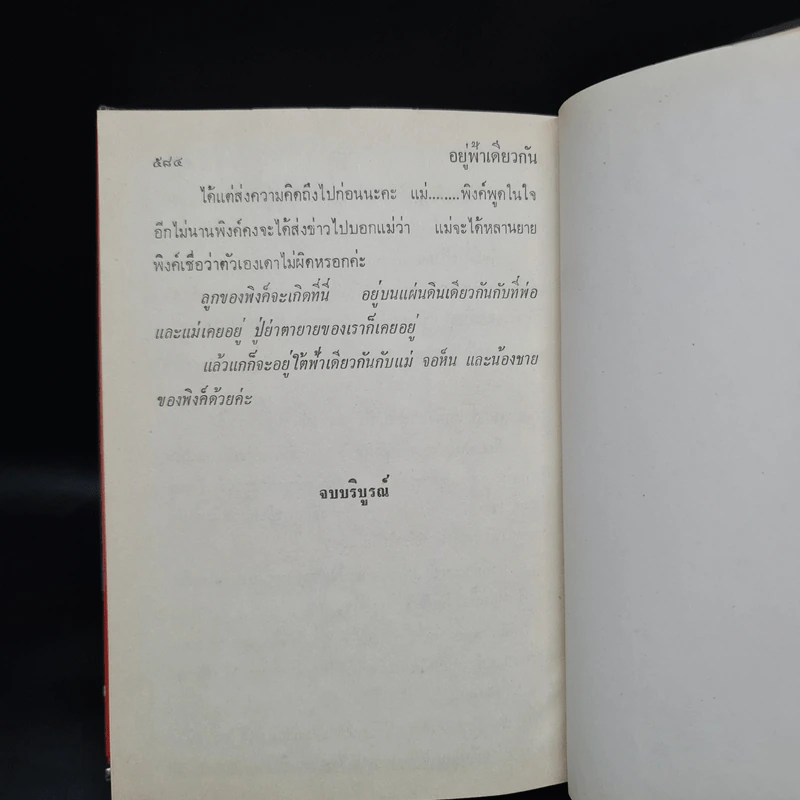 ๕๘๔ อยู่ฟ้าเดียวกัน
ได้แต่ส่งความคิดถึงไปก่อนนะคะ แม่........พิงค์พูดในใจ
อีกไม่นานพิงค์คงจะได้ส่งข่าวไปบอกแม่ว่า แม่จะได้หลานยาย
พิงค์เชื่อว่าตัวเองเดาไม่ผิดหรอกค่ะ
ลูกของพิงค์จะเกิดที่นี่ อยู่บนแผ่นดินเดียวกันกับที่พ่อ
และแม่เคยอยู่ ปู่ย่าตายายของเราก็เคยอยู่
แล้วแกก็จะอยู่ใต้ฟ้าเดียวกันกับแม่ จอห็น และน้องชาย
ของพิงค์ด้วยค่ะ
จบบริบูรณ์